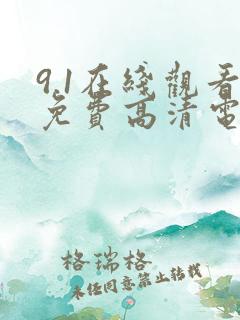 9.1在綫觀看
免費高清電
格瑞格
未经同意禁止转载